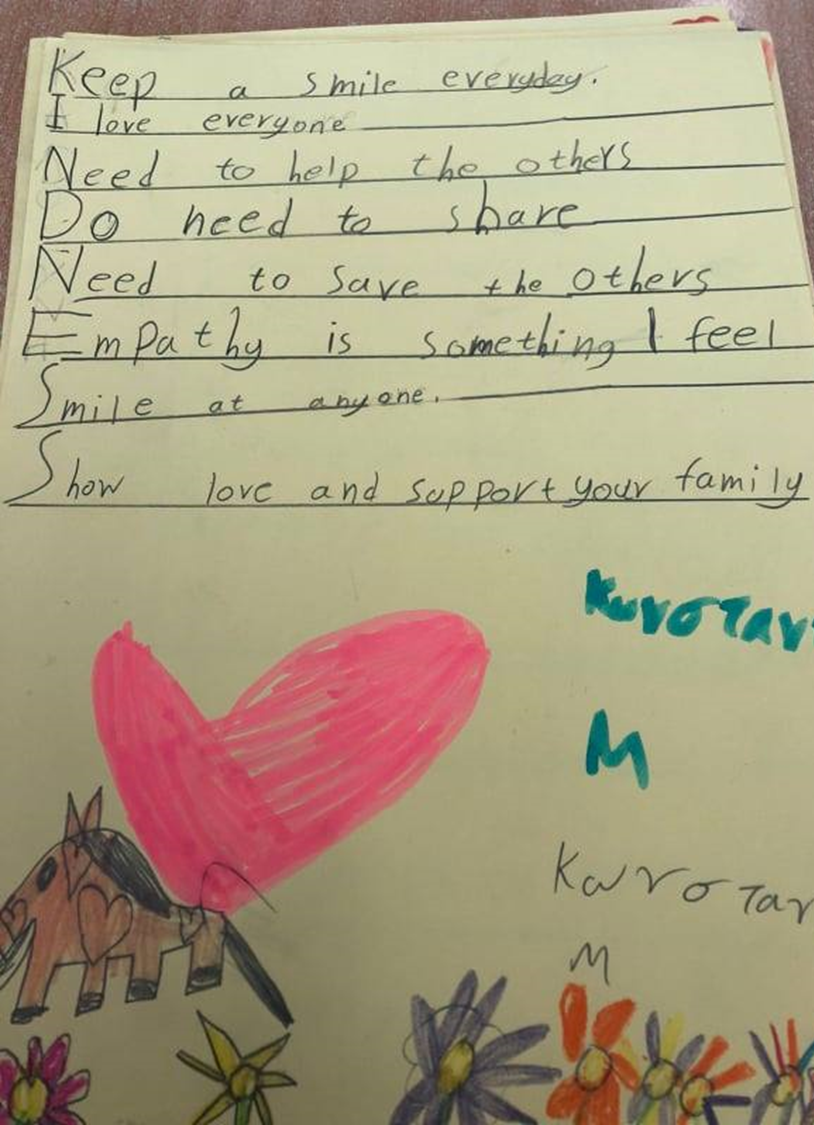 Keep a smile everyday.
I love everyone
Need to help the others
Do need to share
Need to save the others
Empathy is something I feel
Smile at anyone.
Show love and support your family
Κωνσταν
Μ
Κωνσταν
Μ